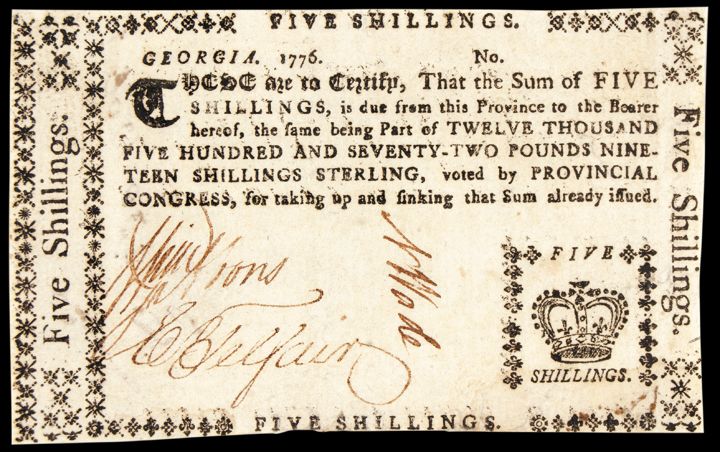 FIVE SHILLINGS.
Five Shillings.
GEORGIA. 1776. No.
THESE are to Certify, That the Sum of FIVE
SHILLINGS, is due from this Province to the Bearer
hereof, the same being Part of TWELVE THOUSAND
FIVE HUNDRED AND SEVENTY-TWO POUNDS NINE-
TEEN SHILLINGS STERLING, voted by PROVINCIAL
CONGRESS, for taking up and sinking that Sum already issued.
Lyons
N Wade
E Telfair
FIVE
SHILLINGS.
Five Shillings.
FIVE SHILLINGS.